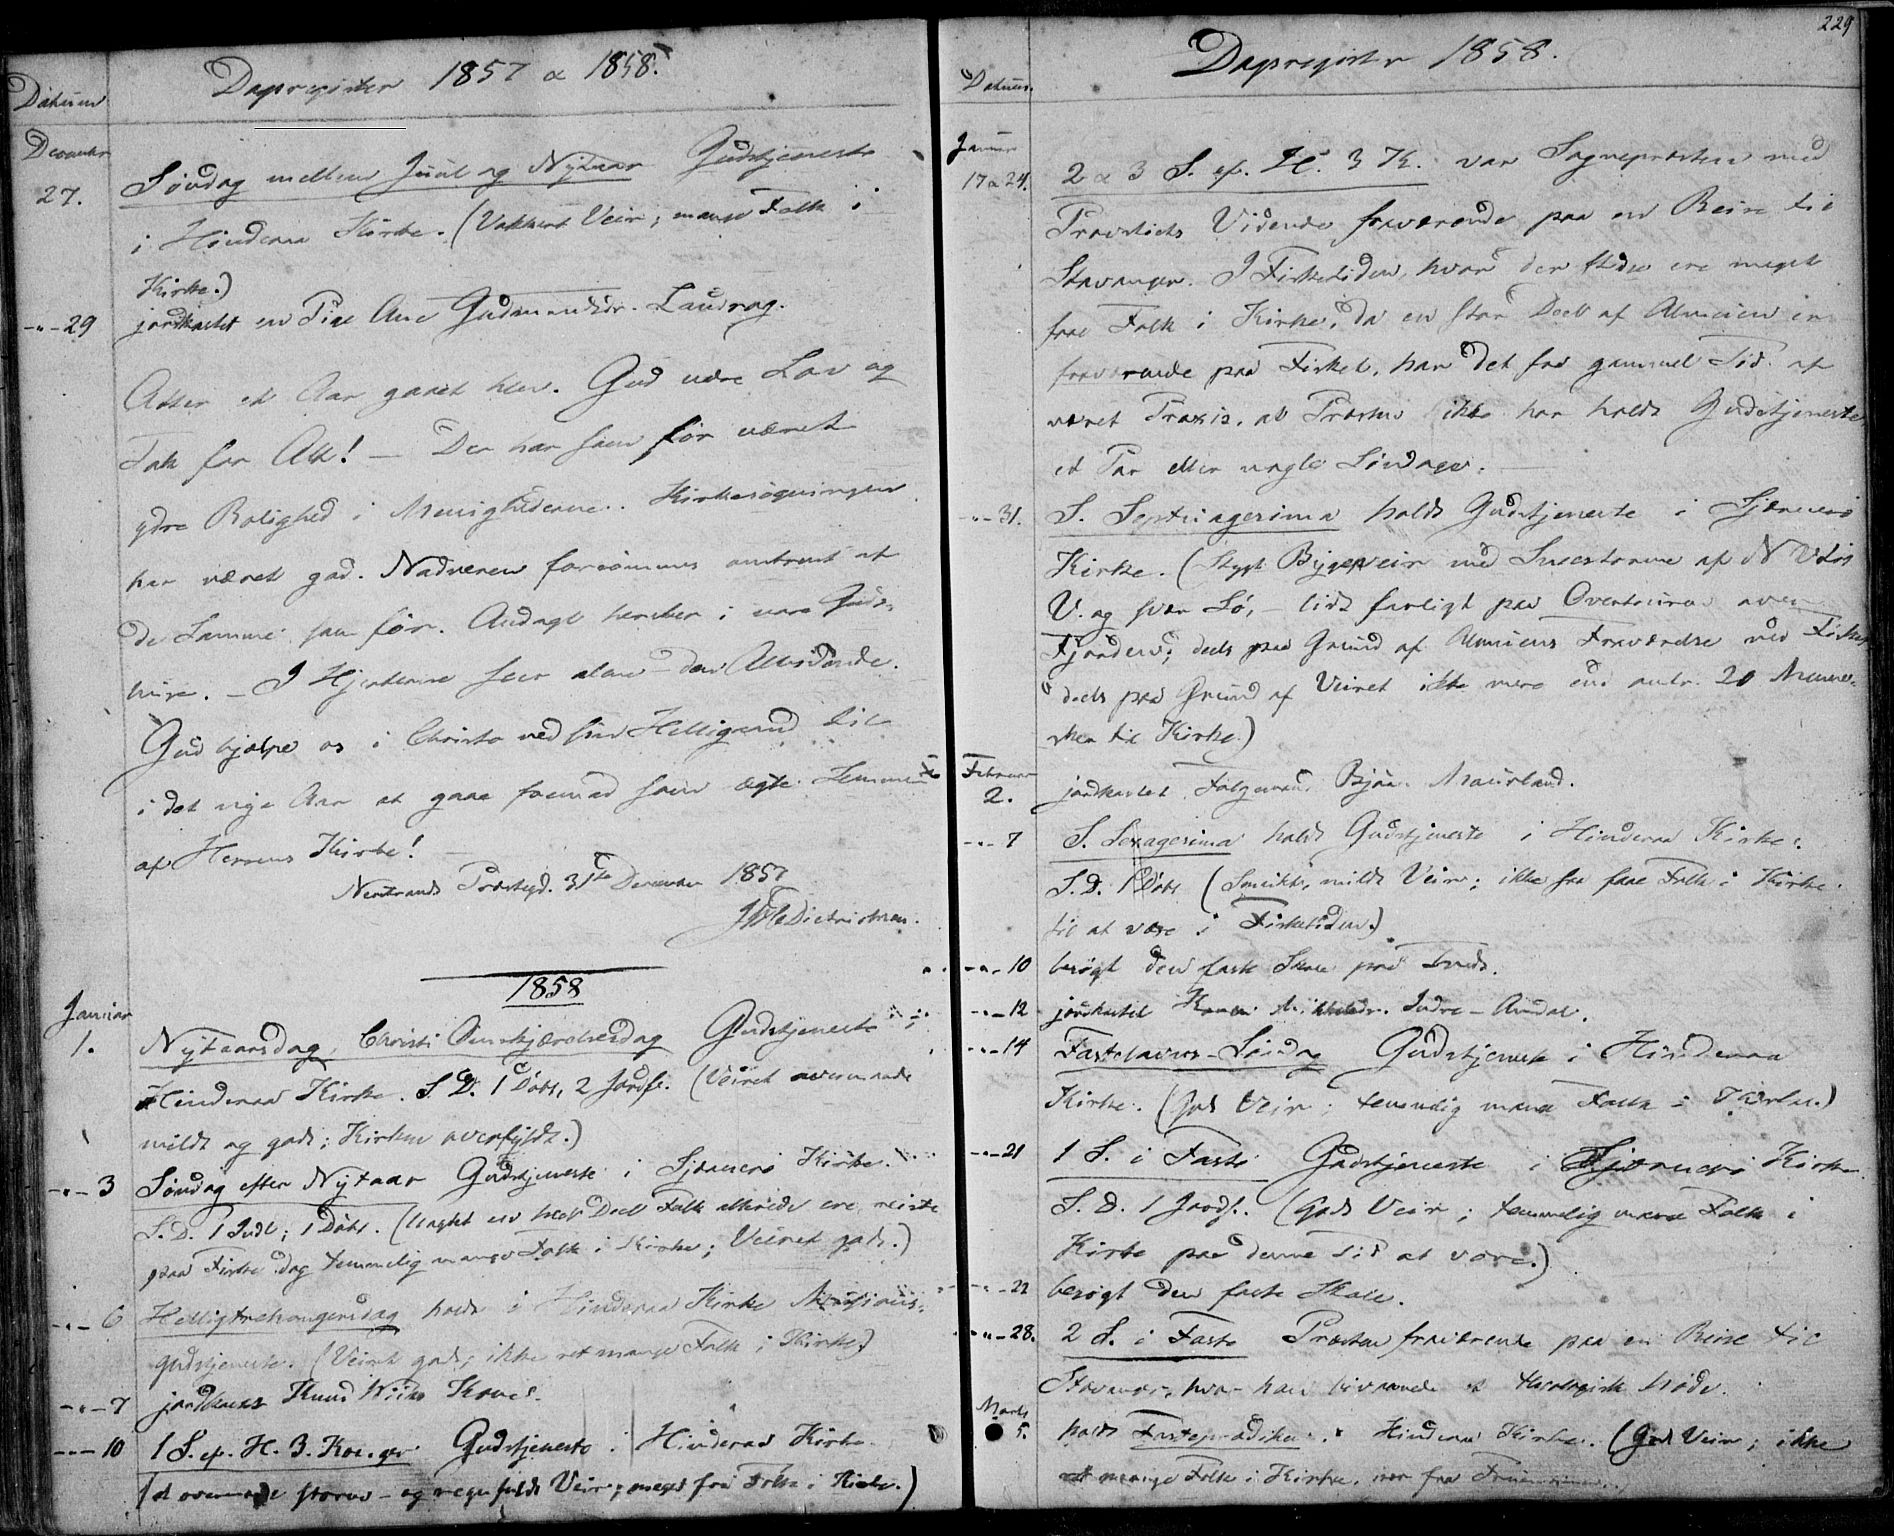 Dagsregister 1857 a 1858.
Datum
December
27. Søndag mellem Juul og Nytaar Gudstjeneste
i Hinderaa Kirke. (Vakkert Veir; mange Folk i
Kirke.)
-"- 29 jordkastet en Pige Ane Gudmundsdr. Landrog.
Atter et Aar gaaet hen. Gud være Lov og
Tak for Alt! — Der har som før været
ydre Rolighed i Menighederne. Kirkesøgningen
har været god. Nadveren forsømmes omtrent af
de Samme som før. Andagt hersker i vore Guds-
huse. – I Hjerterne seer alene den Alvidende.
Gud hjælpe os i Christo ved sin Helligaand til
i det nye Aar at gaae fremad som ægte Lemmer
af Herrens Kirke!
Nerstrands Præstegd. 31te December 1857
Dietrichson.
1858
Januar
1. Nytaarsdag, Christi Omskjærelsesdag Gudstjeneste i
Hinderaa Kirke. S.D. 1 Døbt, 2 Jordf. (Veiret overmaade
mildt og godt; Kirken overfyldt.)
-"- 3 Søndag efter Nytaar Gudstjeneste i Sjærnerø Kirke.
S.D. 1 Indl; 1 Døbt. (Uagtet en heel Deel Folk allerede ere reiste
paa Fiske dog temmelig mange Folk i Kirke; Veiret godt.)
-"- 6 Helligtrekongersdag holdt i Hinderaa Kirke Missions-
gudstjeneste. (Veiret godt; ikke ret mange Folk i Kirke.)
-"- 7 jordkastet Knud Kone.
-"- 10 1 S. ef. H. 3. Kon. Gudstjeneste i Hinderaa Kirke.
(et overmaade storm- og regnfuldt Veir; meget faa Folk i Kirke.)
229
Dagsregister 1858.
Datum
Januar
17 a 24. 2 a 3 S. ef. H. 3 K. var Sognepræsten med
Provstiets Vidende fraværende paa en Reise til
Stavanger. I Fisketiden, hvor der stedse ere meget
faae Folk i Kirke, da en stor Deel af Almuen er
fraværende paa Fisket, har det fra gammel Tid af
været Praxis, at Præsten ikke har holdt Gudstjeneste
et Par eller nogle Søndage.
-"- 31. S. Septuagesima holdt Gudstjeneste i Sjærnerø
Kirke. (Stygt Bygeveir med Sneestorme af N V til
V. og svær Sø, – lidt farligt paa Overturen over
Fjorden; deels paa Grund af Almuens Fraværelse ved Fisket,
deels paa Grund af Veiret ikke mere end omtr. 20 Mennes-
sker til Kirke.)
Februar
2. jordkastet Bjørn
-"- 7 S. Sexagesima holdt Gudstjeneste i Hinderaa Kirke.
S.D. 1 Døbt. (Smukt, mildt Veir; ikke saa faae Folk i Kirke
til at være i Fisketiden.)
-"- 10 besøgt den faste Skole paa
-"- 12 jordkastet Indre-Amdal.
-"- 14 Fastelavns-Søndag Gudstjeneste i Hinderaa
Kirke. (Godt Veir; temmelig mange Folk i Kirke.)
-"- 21 1 S. i Faste Gudstjeneste i Sjærnerø Kirke
S.D. 1 Jordf. (Godt Veir; temmelig mange Folk i
Kirke paa denne Tid at være.)
-"- 22 besøgt den faste Skole.
-"- 28. 2 S. i Faste Præsten fraværende paa en Reise til
Stavanger, hvor han bivaanede et theologisk Møde.
Marts
5. holdt Fasteprædiken i Hinderaa Kirke. (Godt Veir; ikke
mange Folk i Kirke,